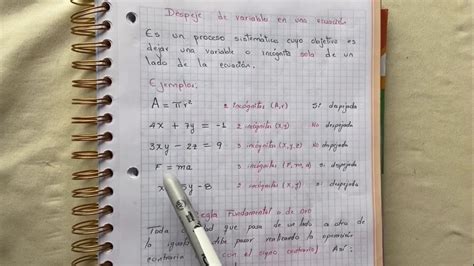 Despeje de variable en una ecuación
Es un proceso sistemático cuyo objetivo es
dejar una variable o incógnita sola de un
lado de la ecuación.
Ejemplos:
A = πr² 2 incógnitas (A,r) Si despejada
4x + 7y = -1 2 incógnitas (x,y) No despejada
3xy - 2z = 9 3 incógnitas (x,y,z) No despejada
F = ma 3 incógnitas (F,m,a) Si despejada
y - 8 2 incógnitas (x,y) Si despejada
Regla Fundamental o de oro
Toda que pasa de un lado a otro de
la debe pasar realizando la operación
contraria con el signo contrario) Así: